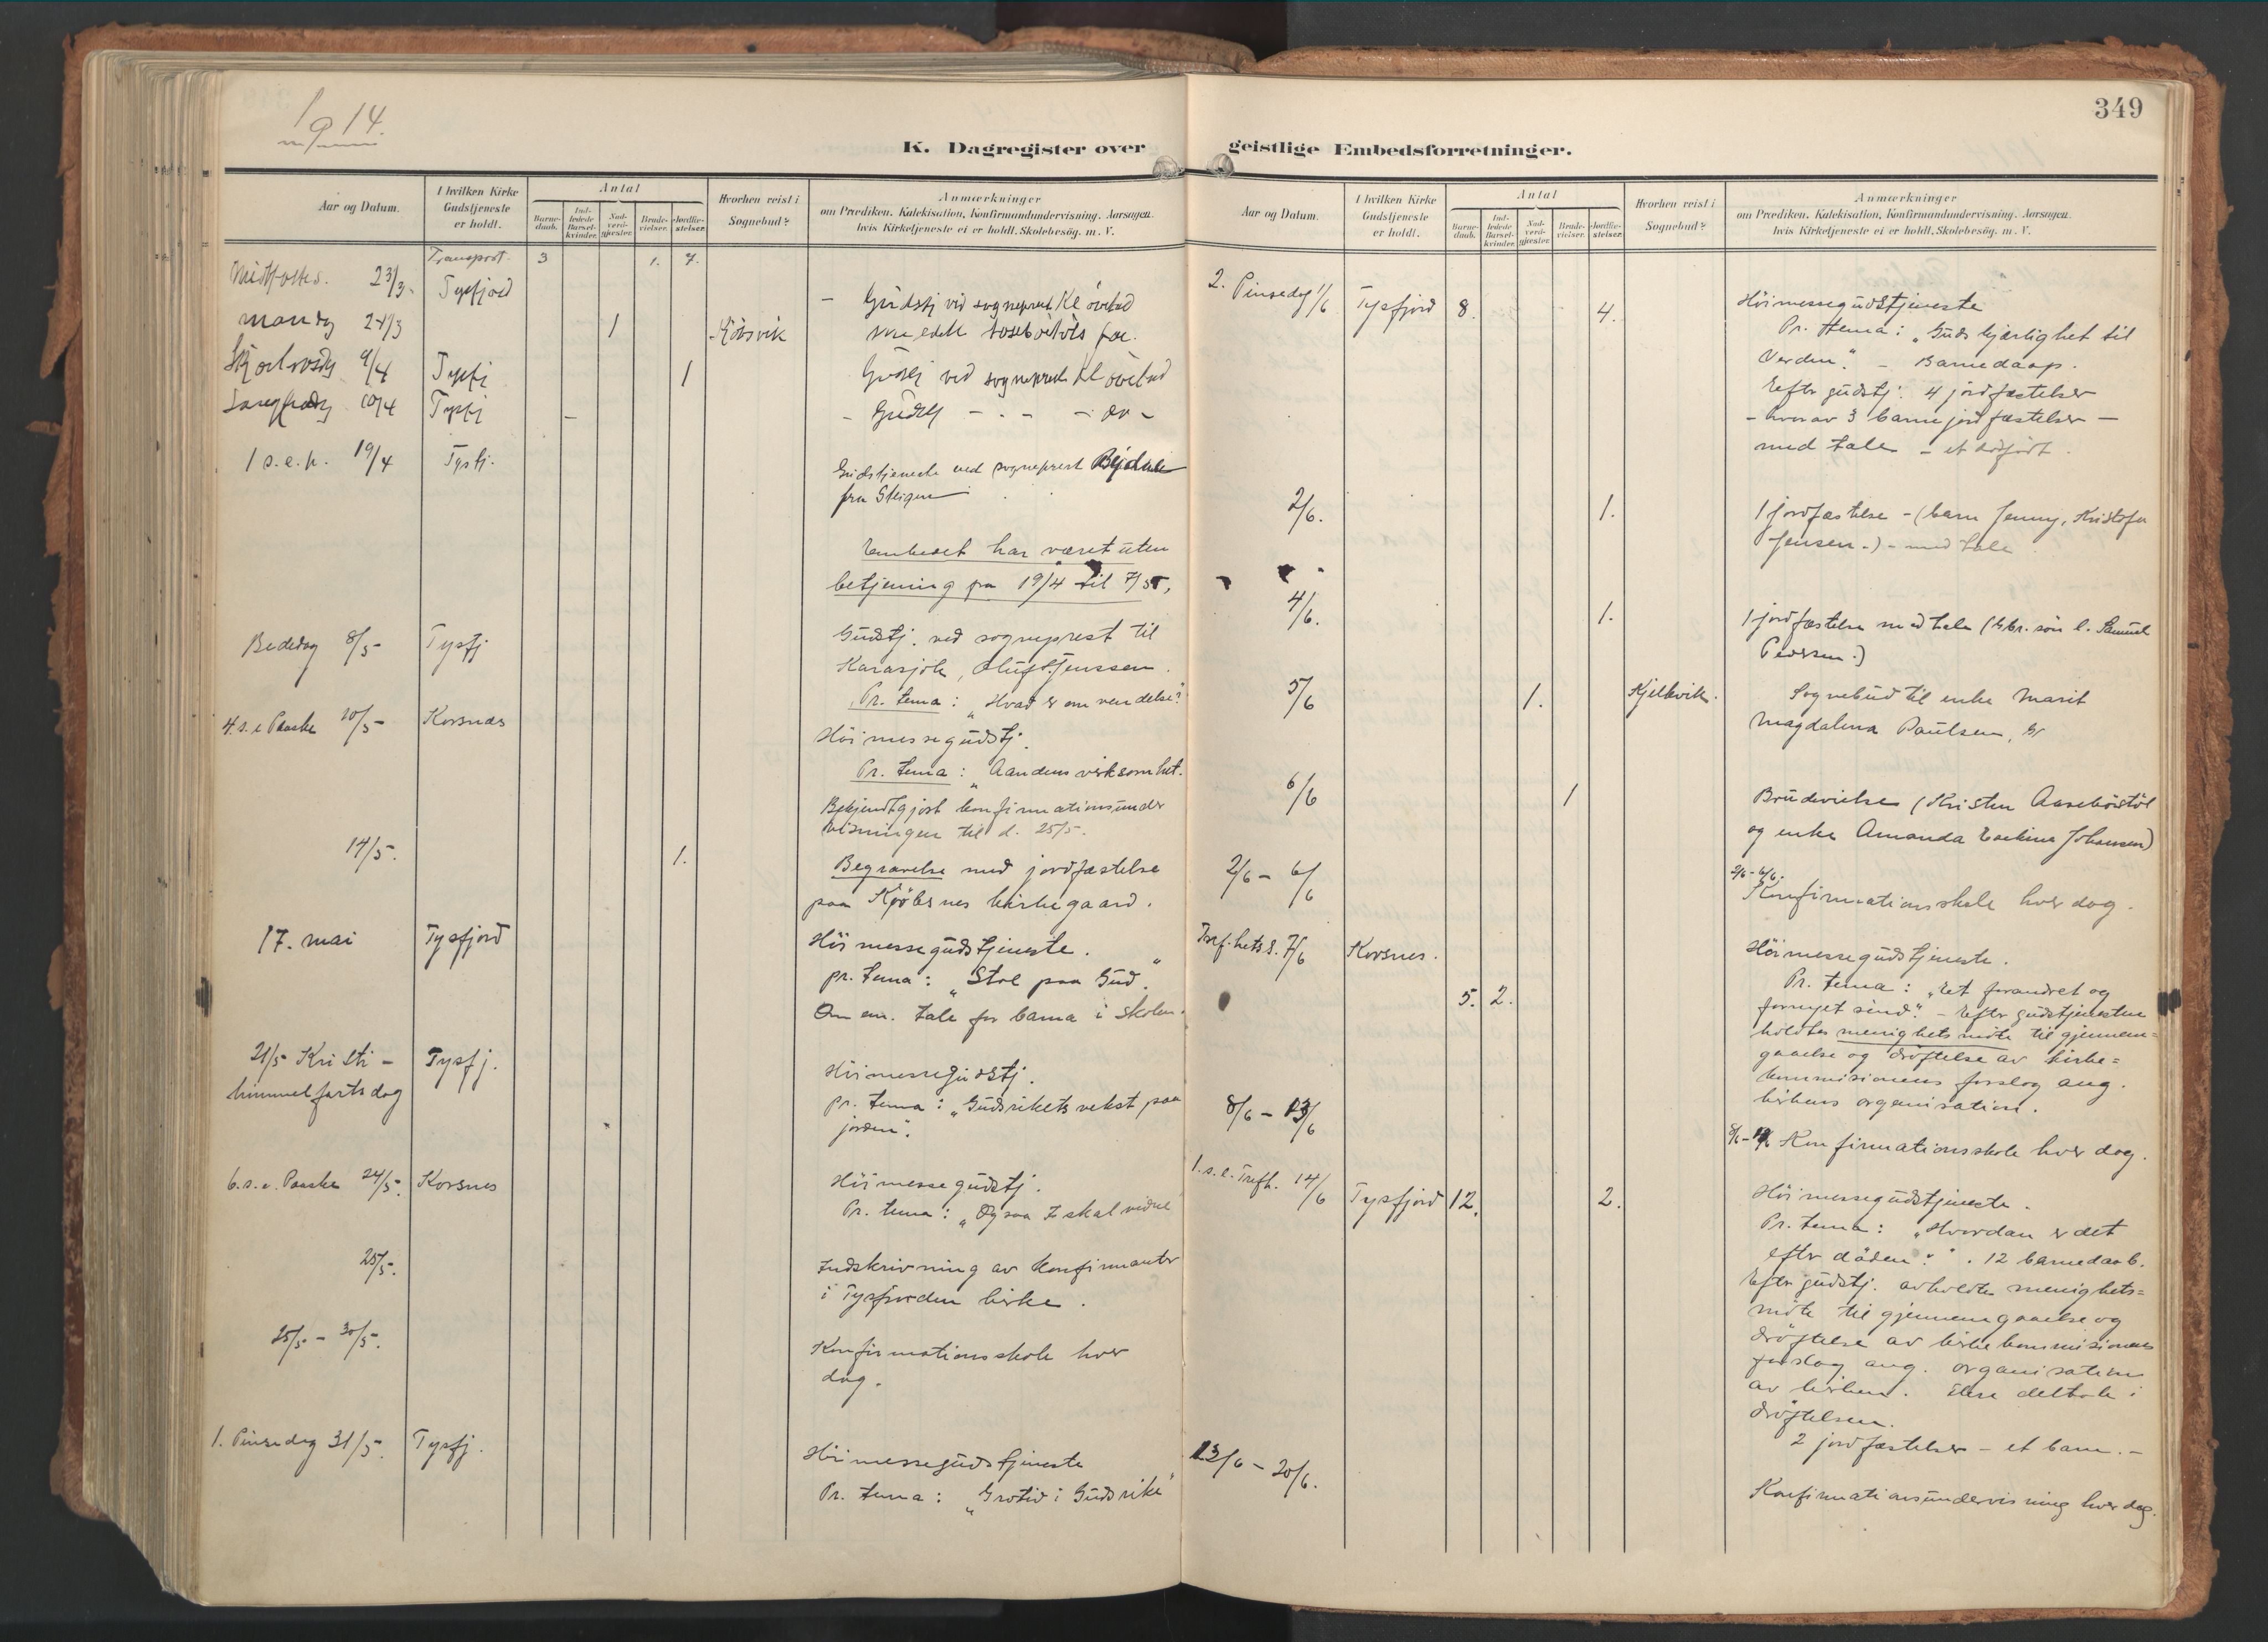 1914.
K. Dagregister over
Aar og Datum.
I hvilken Kirke
Gudstjeneste
er holdt.
Antal
Barne-
daab.
Ind-
ledede
Barsel-
kvinder.
Nad-
verd-
gjæster.
Brude-
vielser.
Jordfæ-
stelser.
Hvorhen reist i
Sognebud?
Anmærkninger
om Prædiken, Katekisation, Konfirmandundervisning, Aarsagen
hvis Kirketjeneste ei er holdt, Skolebesøg. m. V.
Transport. 3 1. 7.
23/3. Tysfjord - Gudstj ved sogneprest Kl
mandag 24/3 1 Kjøbsvik
9/4 Tysfj 1 Gudstj ved sogneprest Kl
10/4 Tysfj - Gudstj - - - do -
1 s.e.p. 19/4 Tysfj. Gudstjeneste ved sogneprest
fra Steigen
Embedet har været uten
betjening fra 19/4 til 7/5.
Bededag 8/5 Tysfj Gudstj. ved sogneprest til
Karasjok, Oluf Jenssen.
Pr. tema: „Hvad er omvendelse?"
4. s. e Paaske 10/5 Korsnes Høimessegudstj.
Pr. tema: „Aandens virksomhet.
Bekjendtgjort konfirmationsunder
visningen til d. 25/5.
14/5. 1. Begravelse med jordfæstelse
paa Kjøbsnes kirkegaard.
17. mai Tysfjord Høimessegudstjeneste.
pr. tema: „Stol paa Gud."
Om em. tale for barna i skolen.
21/5 Kristi- Tysfj. Høimessegudstj.
himmelfartsdag pr. tema: „Guds rikets vekst paa
jorden".
6. s. e. Paaske 24/5. Korsnes Høimessegudstj.
Pr. tema: „Ogsaa I skal vidne"
25/5. Indskrivning av konfirmanter
i Tysfjorden kirke.
25/5 - 30/5. Konfirmationsskole hver
dag.
1. Pinsedag 31/5. Tysfj. Høimessegudstjeneste
Pr. tema: „Grotid i Guds rike"
349
geistlige Embedsforretninger.
Aar og Datum.
I hvilken Kirke
Gudstjeneste
er holdt.
Antal
Barne-
daab.
Ind-
ledede
Barsel-
kvinder.
Nad-
verd-
gjæster.
Brude-
vielser.
Jordfæ-
stelser.
Hvorhen reist i
Sognebud?
Anmærkninger
om Prædiken, Katekisation, Konfirmandundervisning, Aarsagen
hvis Kirketjeneste ei er holdt, Skolebesøg. m. V.
2. Pinsedag 1/6 Tysfjord 8. 4. Høimessegudstjeneste
Pr. tema: „Guds kjærlighet til
verden." - Barnedaap.
Efter gudstj. 4 jordfæstelser
- hvorav 3 barnejordfæstelser -
med tale - et dødfødt.
2/6. 1. 1 jordfæstelse - (barn Jenny, Kristofer
Jensen.) - med tale
4/6. 1. 1 jordfæstelse med tale (Gbr. søn l. Samuel
Pedersen.)
5/6 1. Kjelkvik. Sognebud til enke Marit
Magdalena Paulsen,
6/6 1 Brudevielse (Kristen
og enke Amanda Johansen)
2/6 - 6/6 2/6 - 6/6.
Konfirmationsskole hver dag.
Tref. hets s. 7/6 Korsnes. Høimessegudstjeneste.
5. 2. Pr. tema: „Et forandret og
fornyet sind." - Efter gudstjenesten
holdtes menighetsmøte til gjennem=
gaaelse og drøftelse av kirke=
kommisionens forslag ang.
kirkens organisation.
8/6 - 13/6 8/6 - Konfirmationsskole hver dag.
1. s. e. Trefh. 14/6 Tysfjord 12. 2. Høimessegudstjeneste.
Pr. tema: „Hvordan er det
efter døden?". 12 barnedaab.
Efter gudstj. avholdtes menighets=
møte til gjennemgaaelse og
drøftelse av kirkekommisionens
forslag ang. organisation
av kirken. Flere deltok i
drøftelsen.
2 jordfæstelser - et barn. -
13/6 - 20/6. Konfirmationsundervisning hver dag.